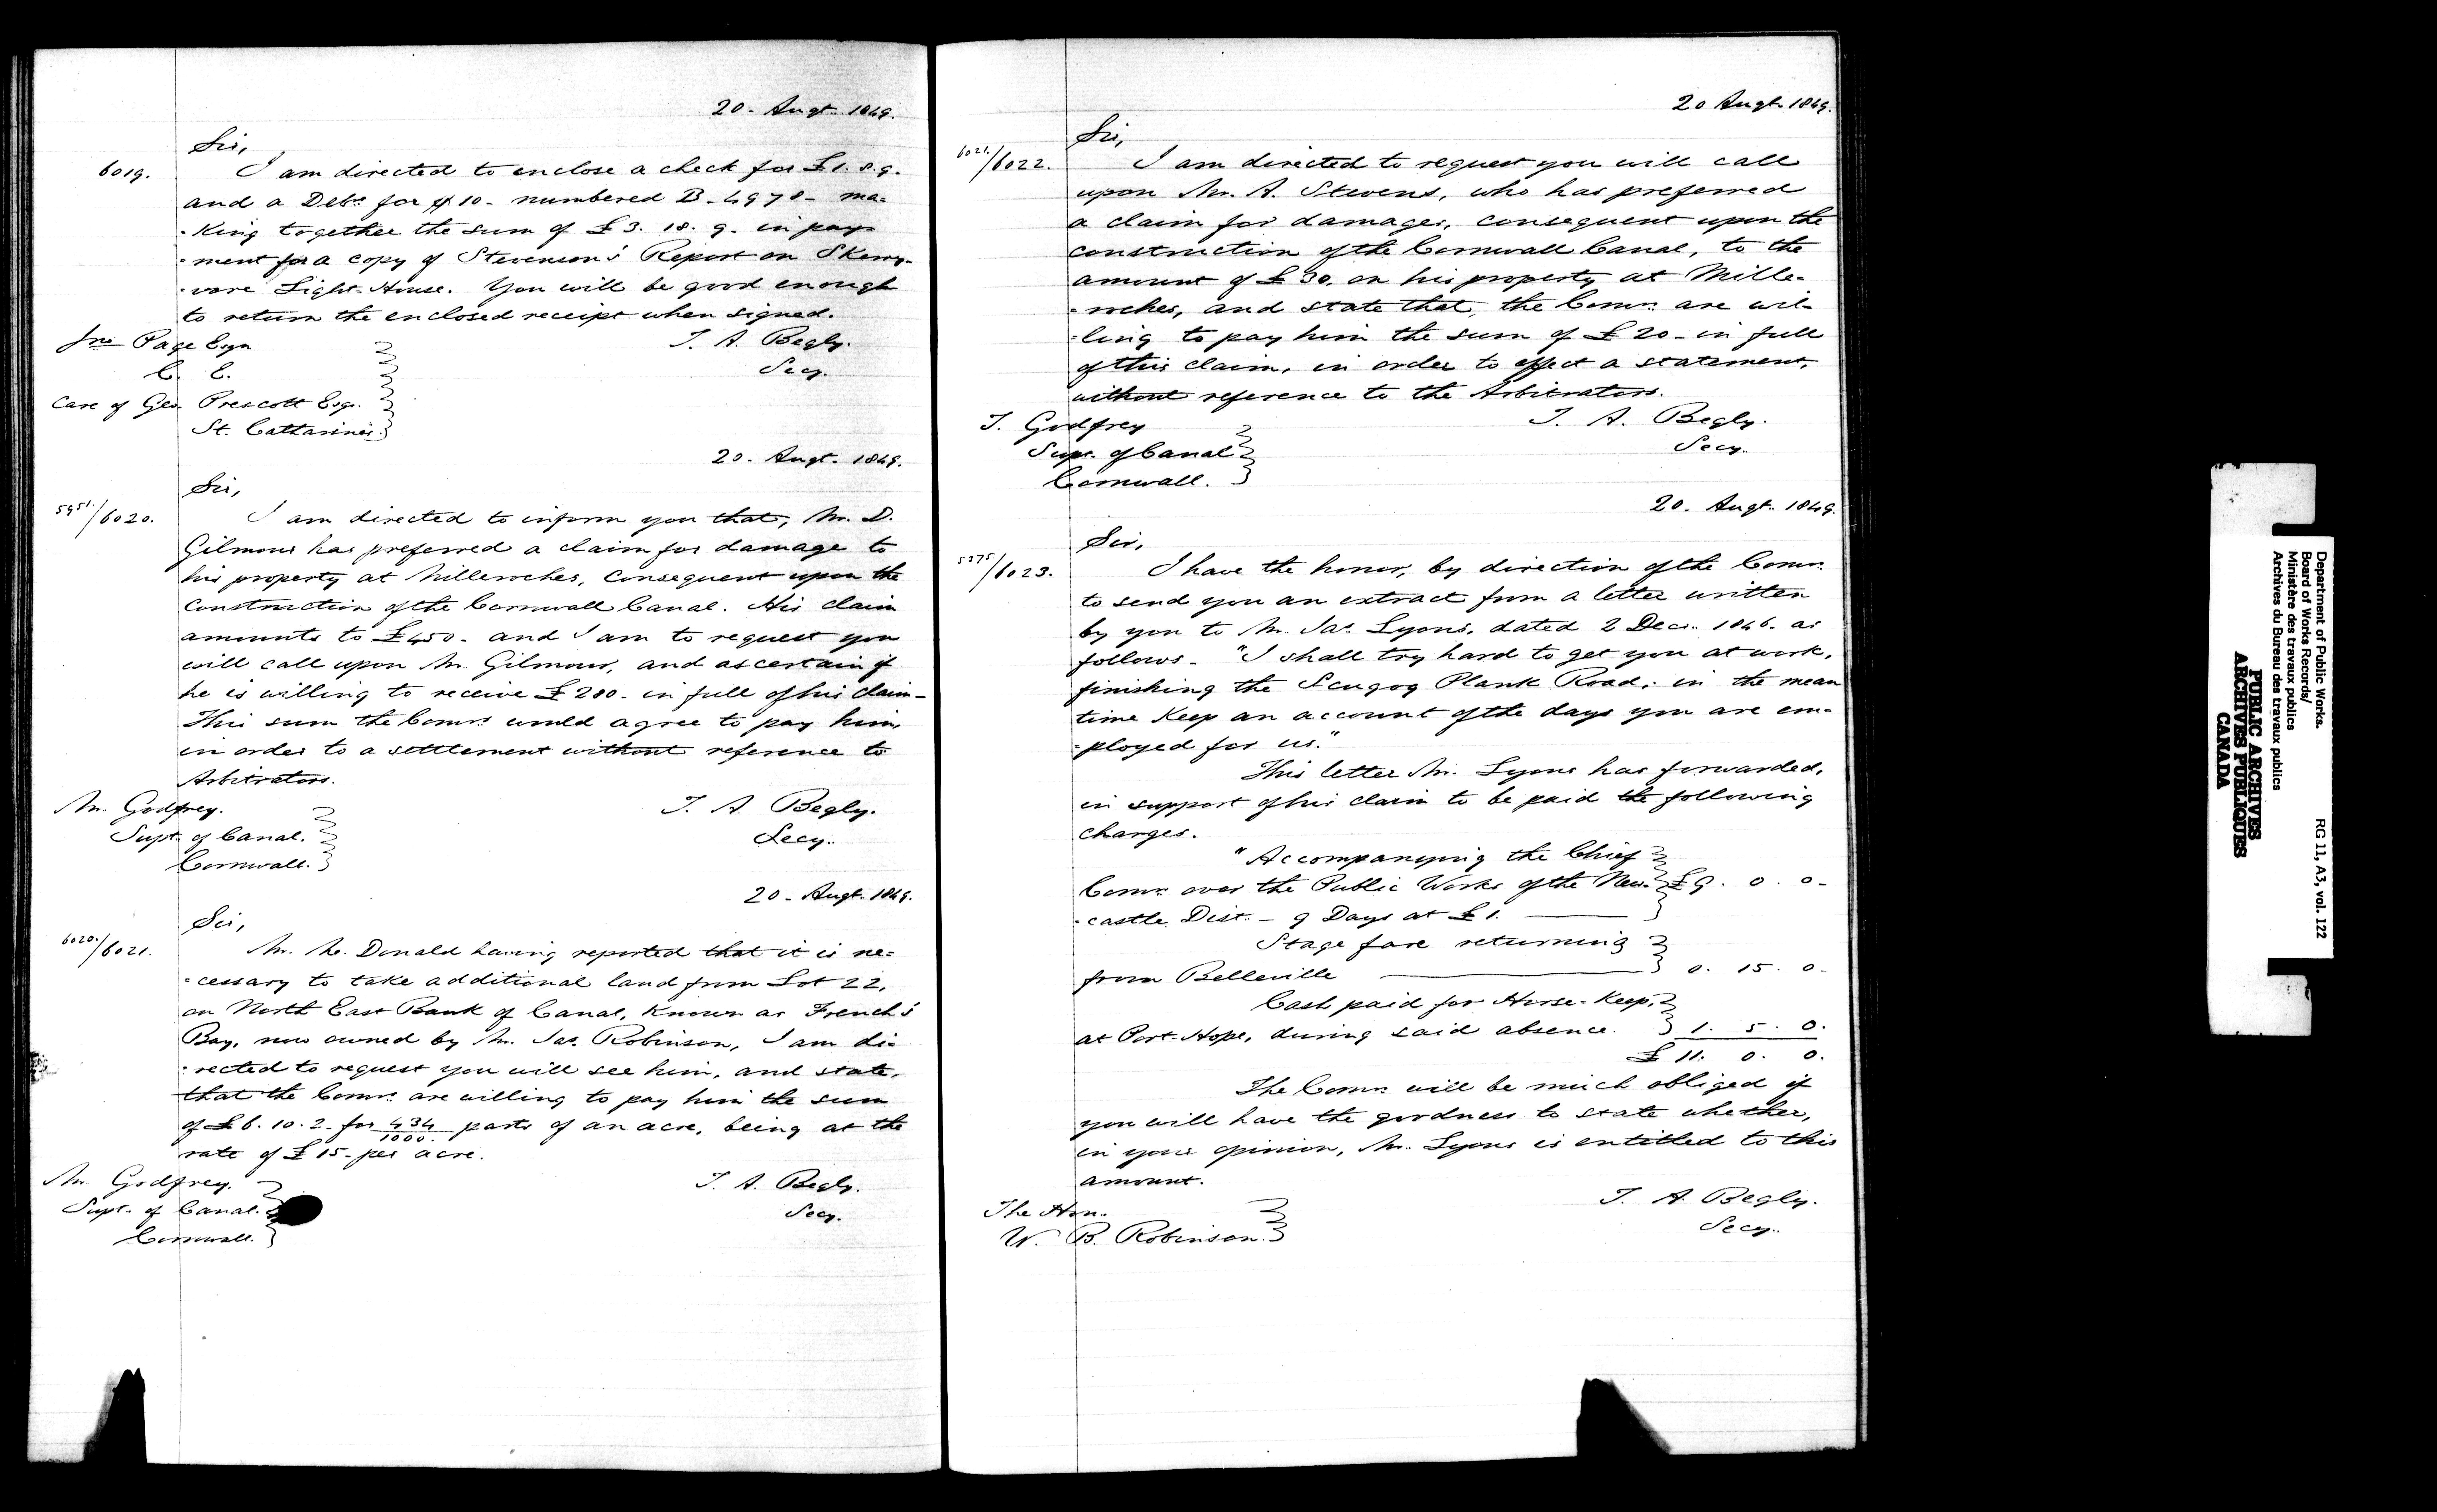 20 - Augt. 1849.
Sir,
6019. I am directed to enclose a check for £1. 8. 9.
and a Debe. for $10 - numbered B - 4978 - ma-
-king together the sum of £3. 18. 9. in pay-
-ment for a copy of Stevenson's Report on Skerry-
-vore Light-House. You will be good enough
to return the enclosed receipt when signed.
Jno Page Esqr. T. A. Begly.
C. E. Secy.
Care of Geo. Prescott Esqr.
St. Catharines.
20 - Augt. 1849.
Sir,
5951./6020. I am directed to inform you that, Mr. D.
Gilmour has preferred a claim for damage to
his property at Milleroches, consequent upon the
construction of the Cornwall Canal. His claim
amounts to £450 - and I am to request you
will call upon Mr. Gilmour, and ascertain if
he is willing to receive £200 - in full of his claim -
This sum the Comrs. would agree to pay him,
in order to a setttement without reference to
Arbitrators.
Mr. Godfrey. T. A. Begly.
Supt. of Canal. Secy.
Cornwall.
20 - Augt. 1849.
Sir,
6020./6021. Mr. Mc. Donald having reported that it is ne-
-cessary to take additional land from Lot 22,
on North East Bank of Canal, known as French's
Bay, now owned by Mr. Jas. Robinson, I am di-
-rected to request you will see him, and state,
that the Comrs. are willing to pay him the sum
of £6. 10. 2 - for 434/1000. parts of an acre, being at the
rate of £15 - per acre.
Mr. Godfrey. T. A. Begly.
Supt. of Canal. Secy.
Cornwall.
20 Augt. 1849.
Sir,
6021./6022. I am directed to request you will call
upon Mr. A. Stevens, who has preferred
a claim for damages, consequent upon the
construction of the Cornwall Canal, to the
amount of £30, on his property at Mille-
-roches, and state that, the Comrs. are wil-
-ling to pay him the sum of £20 - in full
of this claim, in order to effect a statement,
without reference to the Arbitrators.
T. Godfrey T. A. Begly.
Supt. of Canal Secy.
Cornwall.
20. Augt. 1849.
Sir,
5275/6023. I have the honor, by direction of the Comrs.
to send you an extract from a letter written
by you to Mr. Jas. Lyons, dated 2 Decr. 1846. as
follows - "I shall try hard to get you at work,
finishing the Scugog Plank Road; in the mean
time keep an account of the days you are em-
-ployed for us."
This letter Mr. Lyons has forwarded,
in support of his claim to be paid the following
charges.
"Accompanying the Chief
Comr. over the Public Works of the New- £9. 0. 0 -
-castle Dist. - 9 Days at £1.
Stage fare returning
from Belleville 0. 15. 0 -
Cash paid for Horse-keep,
at Port-Hope, during said absence. 1. 5. 0.
£11. 0. 0.
The Comrs. will be much obliged if
you will have the goodness to state whether,
in your opinion, Mr. Lyons is entitled to this
amount.
The Hon. T. A. Begly.
W. B. Robinson. Secy.
Department of Public Works. RG 11, A3, vol. 122
Board of Works Records/
Ministère des travaux publics
Archives du Bureau des travaux publics
PUBLIC ARCHIVES
ARCHIVES PUBLIQUES
CANADA